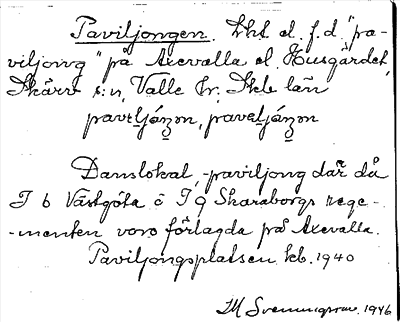 Paviljongen. Lht el. f.d. "pa-
viljong" på Axevalla el. Husgärdet,
Skärv s:n, Valle hr, Skb län
Danslokal, -paviljong där då
I 6 Västgöta o I 9 Skaraborgs rege-
-menten voro förlagda på Axevalla.
Paviljongsplatsen kb. 1940
M Svenungsson. 1946